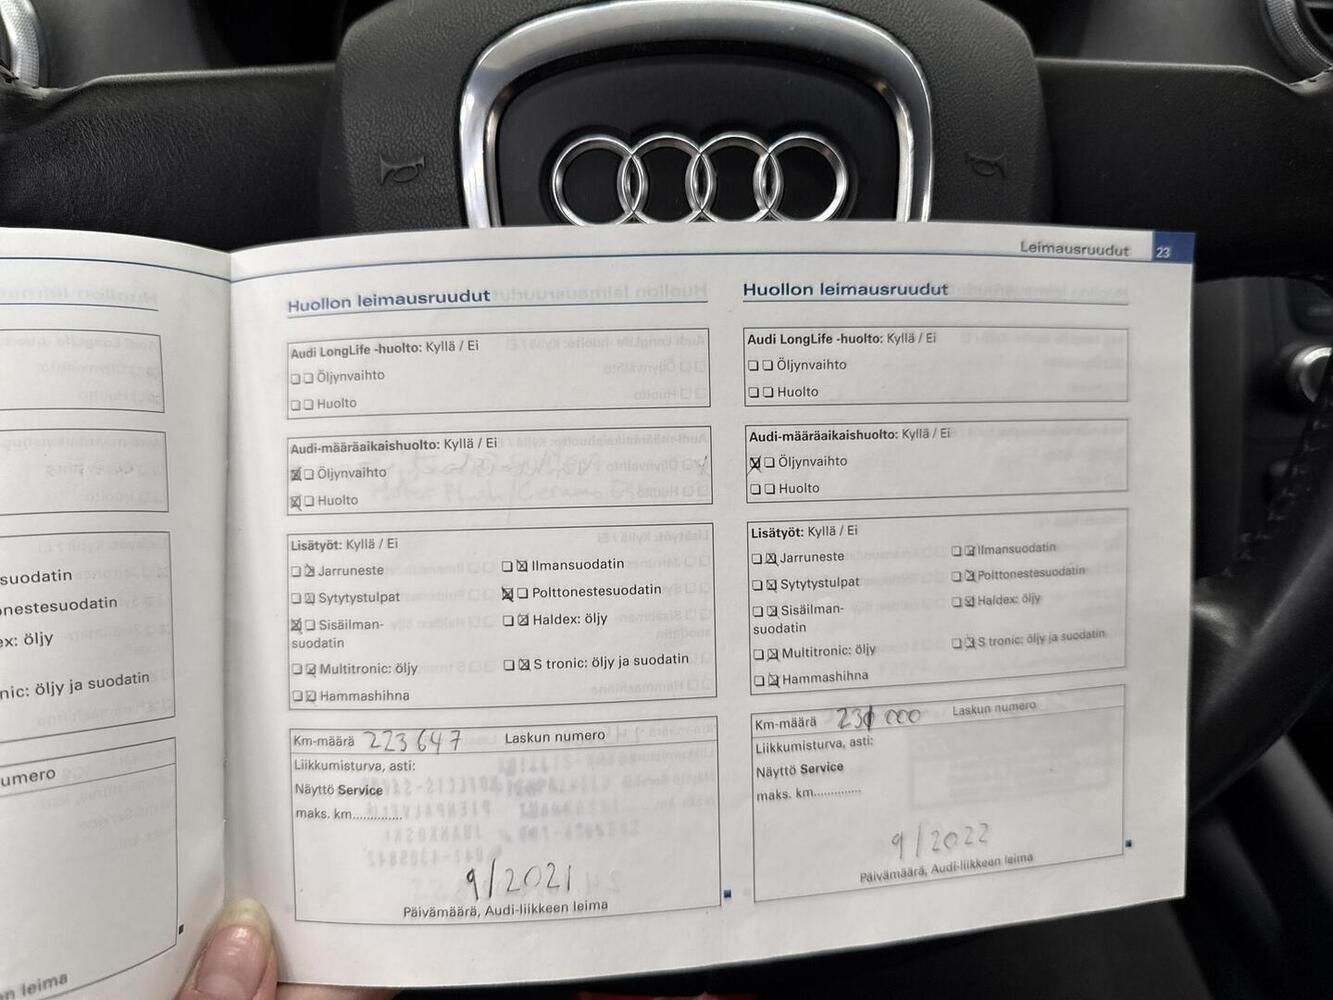 Leimausruudut 23
suodatin
onestesuodatin
ex: öljy
nic: öljy ja suodatin
umero
n leima
Huollon leimausruudut
Audi LongLife -huolto: Kyllä / Ei
Öljynvaihto
Huolto
Audi-määräaikaishuolto: Kyllä / Ei
Öljynvaihto
Huolto
Lisätyöt: Kyllä / Ei
Jarruneste
Sytytystulpat
Sisäilman-
suodatin
Multitronic: öljy
Hammashihna
Ilmansuodatin
Polttonestesuodatin
Haldex: öljy
S tronic: öljy ja suodatin
Km-määrä 223647 Laskun numero
Liikkumisturva, asti:
Näyttö Service
maks. km..............
9/2021
Päivämäärä, Audi-liikkeen leima
Huollon leimausruudut
Audi LongLife -huolto: Kyllä / Ei
Öljynvaihto
Huolto
Audi-määräaikaishuolto: Kyllä / Ei
Öljynvaihto
Huolto
Lisätyöt: Kyllä / Ei
Jarruneste
Sytytystulpat
Sisäilman-
suodatin
Multitronic: öljy
Hammashihna
Ilmansuodatin
Polttonestesuodatin
Haldex: öljy
S tronic: öljy ja suodatin
Km-määrä Laskun numero
Liikkumisturva, asti:
Näyttö Service
maks. km..............
9/2022
Päivämäärä, Audi-liikkeen leima